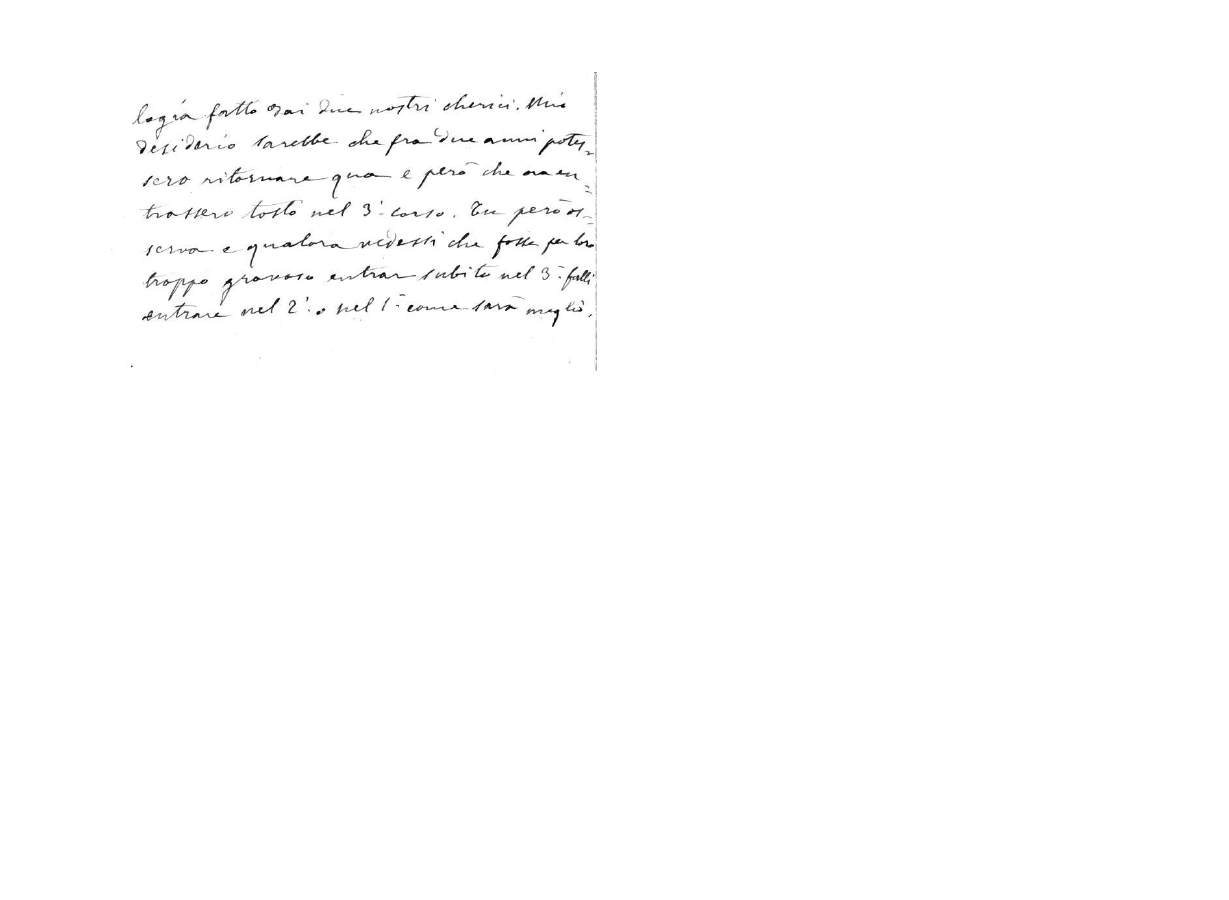 logia fatto dai due nostri cherici. Mio
desiderio sarebbe che fra due anni potes=
sero ritornare qua e però che ora en=
trassero tosto nel 3º corso. Tu però os=
serva e qualora vedessi che fosse per loro
troppo gravoso entrar subito nel 3º falli
entrare nel 2º o nel 1º come sarà meglio.